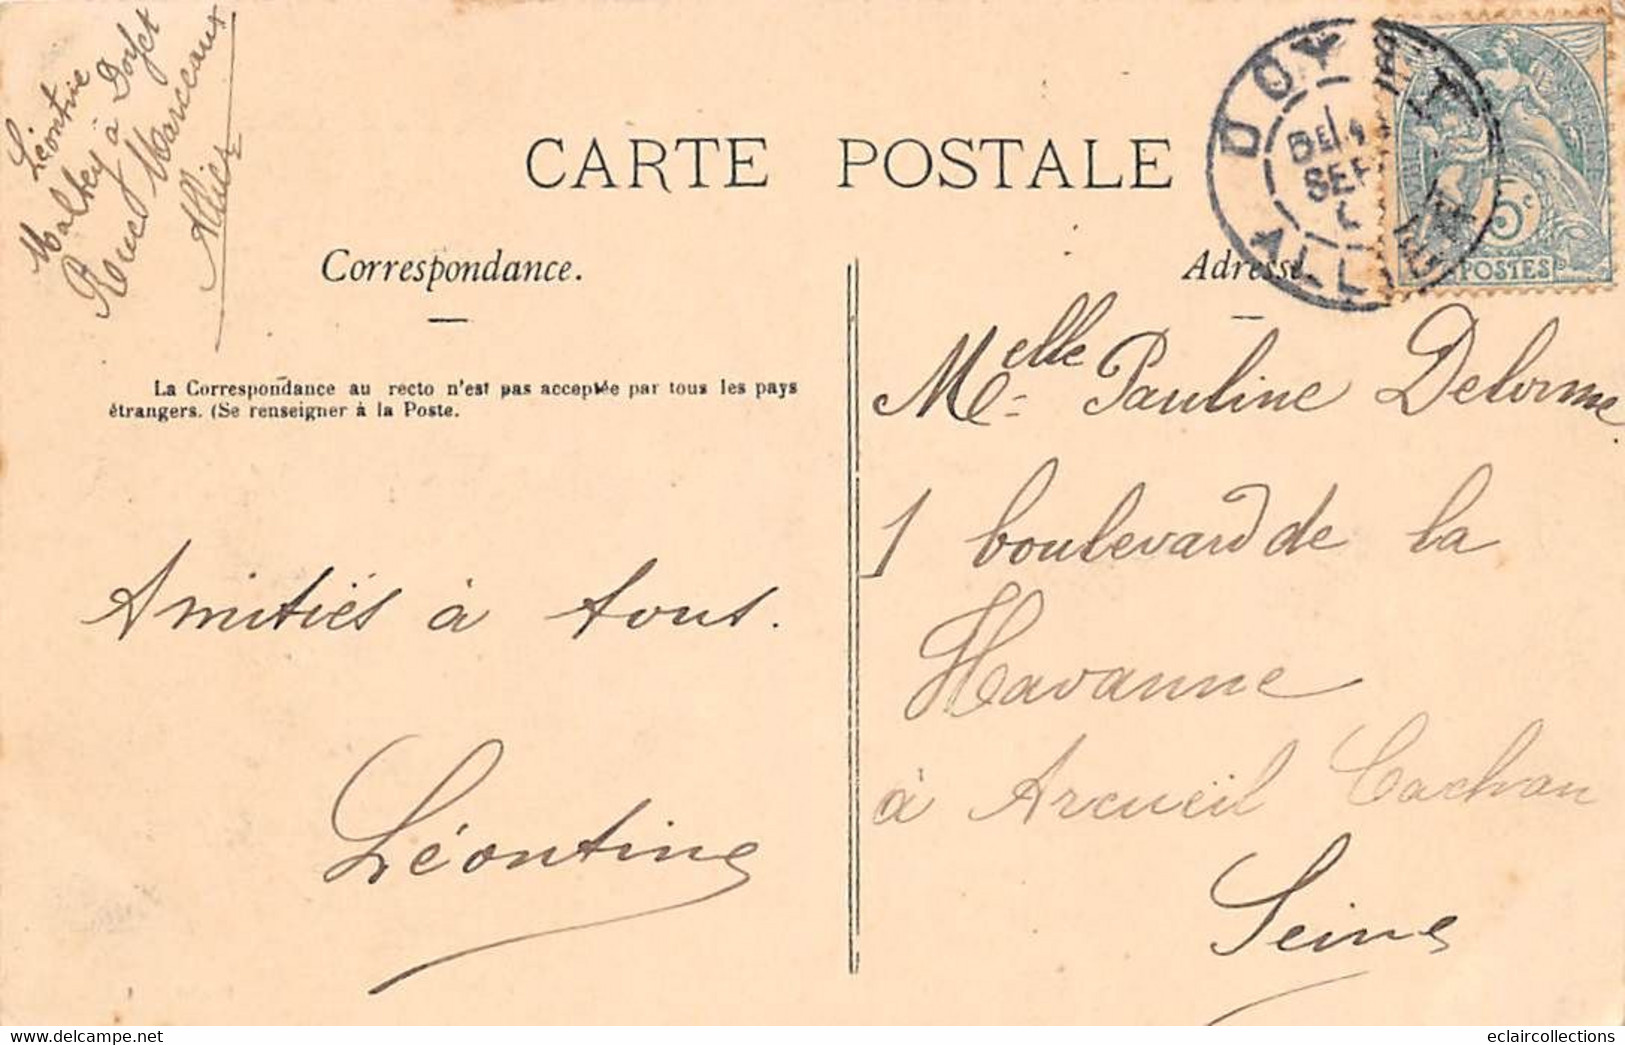 Léontine
à Doyet
Marceaux
Allier
CARTE POSTALE
DOYET
SEP
ALLIER
5c
POSTES
Correspondance.
Adresse.
La Correspondance au recto n'est pas acceptée par tous les pays
étrangers. (Se renseigner à la Poste.
Amitiés à tous.
Léontine
Melle Pauline Delorme
1 boulevard de la
Havanne
à Arcueil Cachan
Seine
eclaircollections